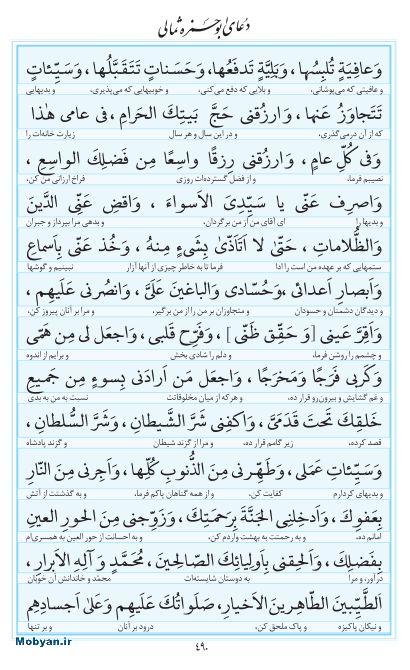 دعای ابوحمزه ثمالی
وَعافِيَةٍ تُلبِسُها ، وَبَلِيَّةٍ تَدفَعُها، وَحَسَناتٍ تَتَقَبَّلُها ، وَسَيِّئاتٍ
و عافیتی که می‌پوشانی، و بلایی که دفع می‌کنی، و خوبیهایی که می‌پذیری، و بدیهایی
تَتَجاوَزُ عَنها، وَارزُقنى حَجَّ بَيتِكَ الحَرامِ ، فى عامى هٰذا
که از آن درمی‌گذری. و در این سال و هر سال زیارت خانه‌ات را
وَفى كُلِّ عامٍ، وَارزُقنى رِزقًا واسِعًا مِن فَضلِكَ الواسِعِ ،
نصیبم فرما، و از فضل گسترده‌ات روزی فراخ ارزانی من کن.
وَاصرِف عَنّى يا سَيِّدِى الأَسواءَ ، وَاقضِ عَنِّى الدَّينَ
و بدیها را ای آقای من از من برگردان. و بدهی مرا بپرداز و جبران
وَالظُّلاماتِ ، حَتّىٰ لا اَتَاَذّىٰ بِشَىءٍ مِنهُ ، وَخُذ عَنّى بِاَسماعِ
ستمهایی که بر عهده من است را ادا فرما تا به خاطر چیزی از آنها آزار نبینیم و گوشها
وَاَبصارِ اَعدائى ،وَحُسّادى وَالباغينَ عَلَىَّ ، وَانصُرنى عَلَيهِم ،
و دیدگان دشمنان و حسودان و متجاوزان بر من را از من برگیر. و مرا بر آنان پیروز کن.
وَاَقِرَّ عَينى [وَ حَقِّق ظَنّى] ، وَفَرِّح قَلبى ، وَاجعَل لى مِن هَمّى
و چشمم را روشن فرما، و دلم را شادی بخش و برایم از اندوه
وَكَربى فَرَجًا وَمَخرَجًا ، وَاجعَل مَن اَرادَنى بِسوءٍ مِن جَميعِ
و غم گشایش و بیرون‌رو قرار ده. و هر که از میان مخلوقاتت نسبت به من به بدی
خَلقِكَ تَحتَ قَدَمَىَّ ، وَاكفِنى شَرَّ الشَّيطانِ ، وَشَرَّ السُّلطانِ ،
قصد کرده، زیر گامم قرار ده، و مرا از گزند شیطان و گزند پادشاه
وَسَيِّئاتِ عَمَلى ، وَطَهِّرنى مِنَ الذُّنوبِ كُلِّها، وَاَجِرنى مِنَ النّارِ
و بدیهای کردارم کفایت کن. و از همه گناهان پاکم فرما. و به گذشتت از آتش
بِعَفوِكَ ، وَاَدخِلنِى الجَنَّةَ بِرَحمَتِكَ، وَزَوِّجنى مِنَ الحورِ العينِ
امانم ده، و به رحمتت به بهشت واردم کن، و به احسانت از حور العین به همسری‌ام
بِفَضلِكَ، وَاَلحِقنى بِاَولِيائِكَ الصّالِحينَ ، مُحَمَّدٍ وَ آلِهِ الاَبرارِ ،
درآور، و مرا به دوستان شایسته‌ات محمّد و خاندانش آن خوبان
اَلطَّيِّبينَ الطّاهِرينَ الاَخيارِ، صَلَواتُكَ عَلَيهِم وَعَلىٰ اَجسادِهِم
و نیکان پاکیزه و پاک ملحق کن. درود بر آنان و بر تنها
۴۹۰
Mobyan.ir